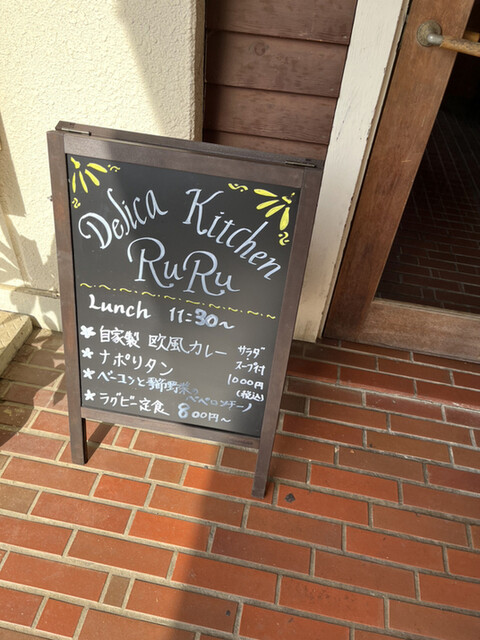 Delica Kitchen
RuRu
Lunch 11:30~
自家製 欧風カレー
ナポリタン
ベーコンと季節野菜の
ペペロンチーノ
ラグビー定食 800円~
サラダ
スープ付
1000円
(税込)